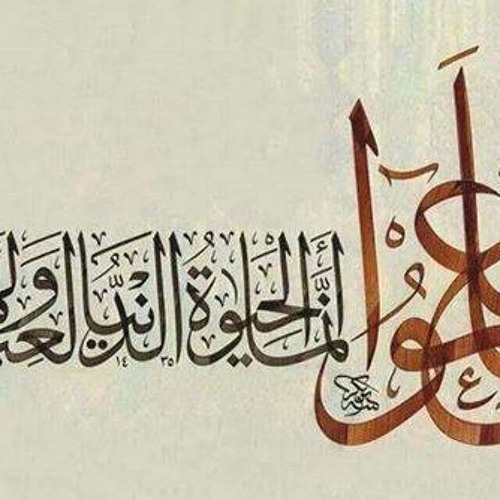 علموا أنَّما الحيوة الدُّنيا لعب و
١٤٣٥